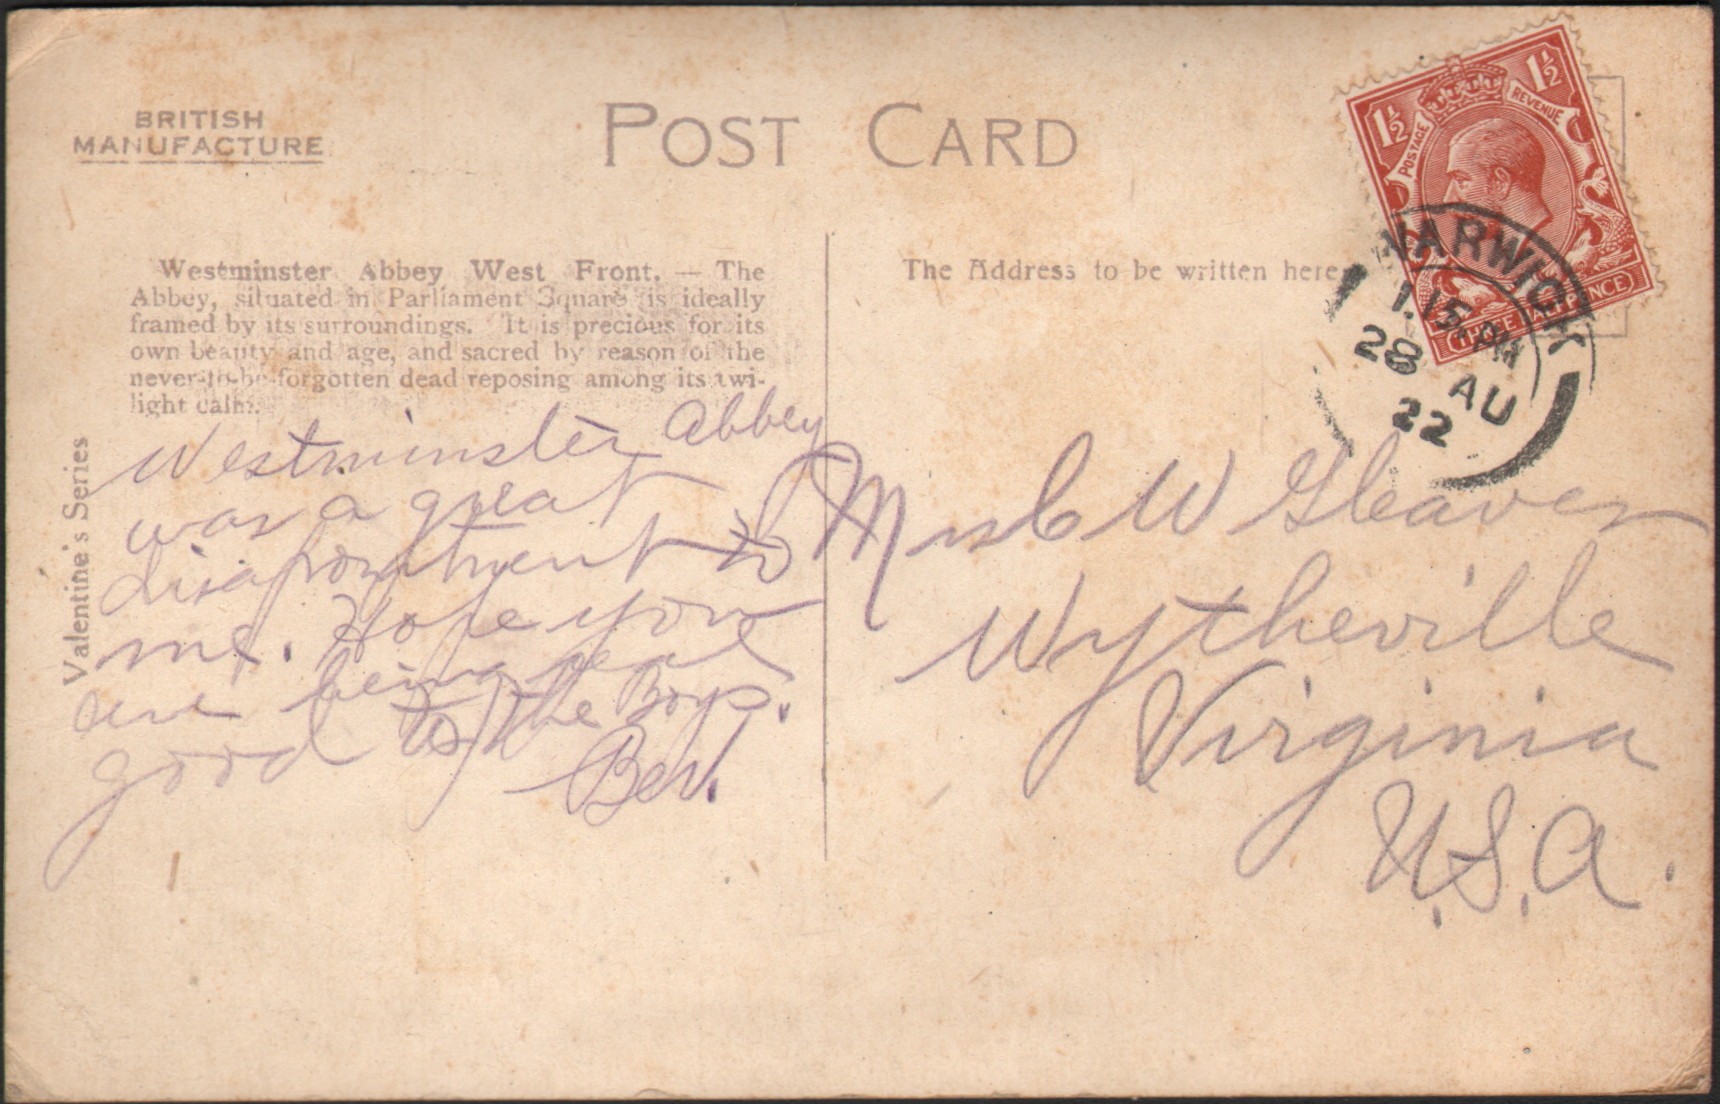 BRITISH
MANUFACTURE
POST CARD
1½ 1½
POSTAGE REVENUE
THREE HALFPENCE
WARWICK
1.15 PM
28 AU
22
Westminster Abbey West Front. — The
Abbey, situated in Parliament Square is ideally
framed by its surroundings. It is precious for its
own beauty and age, and sacred by reason of the
never-to-be-forgotten dead reposing among its twi-
light calm.
Valentine's Series
The Address to be written here.
Westminster Abbey
was a great
disapointment to
me. Hope you
are being real
good to the Boys.
Mrs C W Gleaves
Wytheville
Virginia
U.S.A.